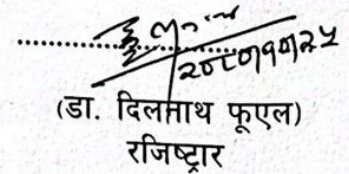 २०८०।१०।२५
(डा. दिलानाथ फूएल)
रजिष्ट्रार